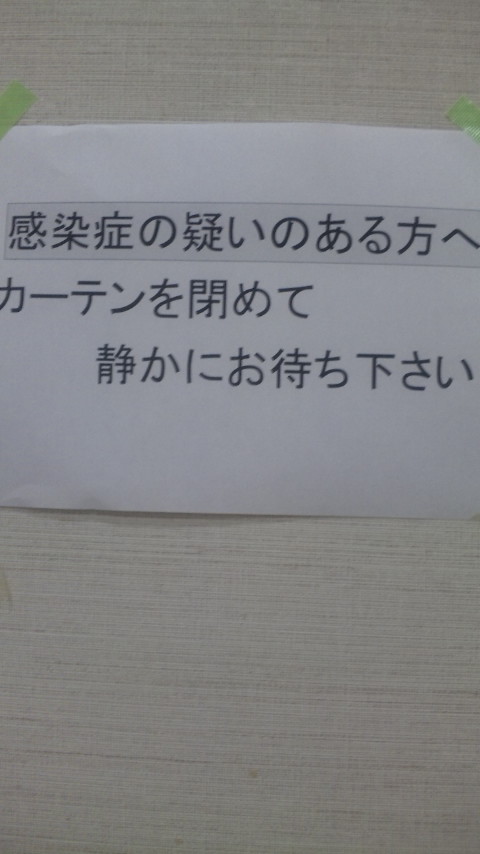 感染症の疑いのある方へ
カーテンを閉めて
静かにお待ち下さい